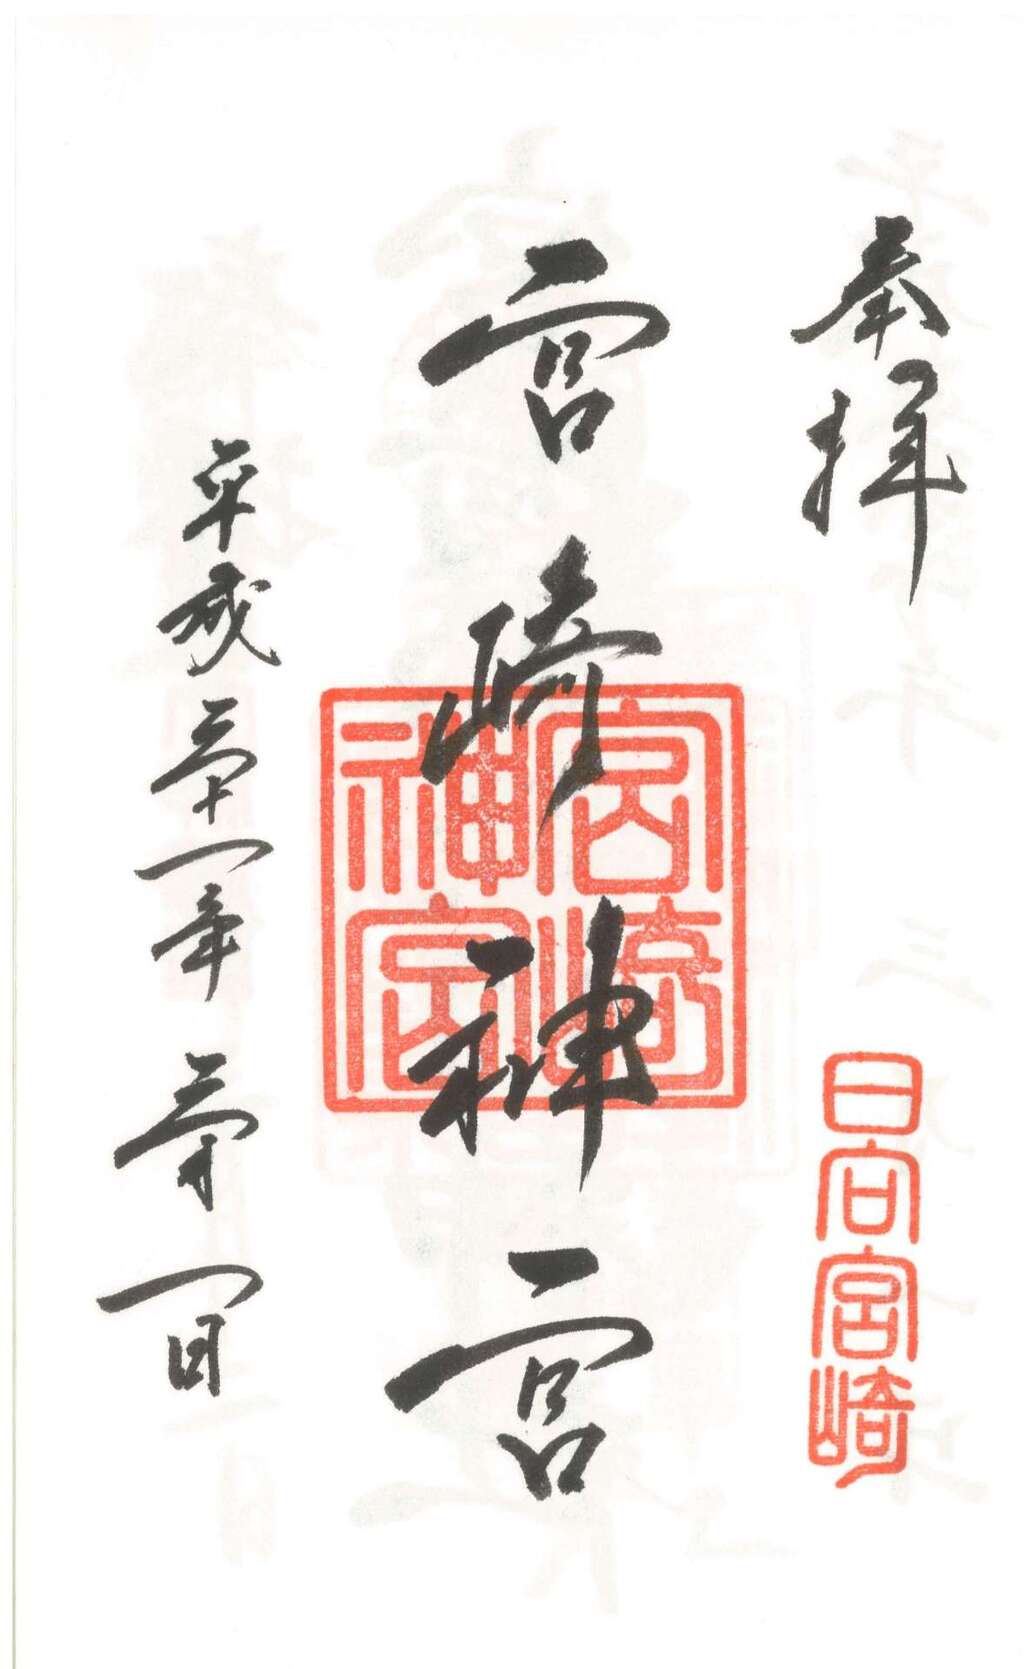 奉拝
日向宮崎
宮崎神宮
宮崎神宮
平成三十一年三月一日